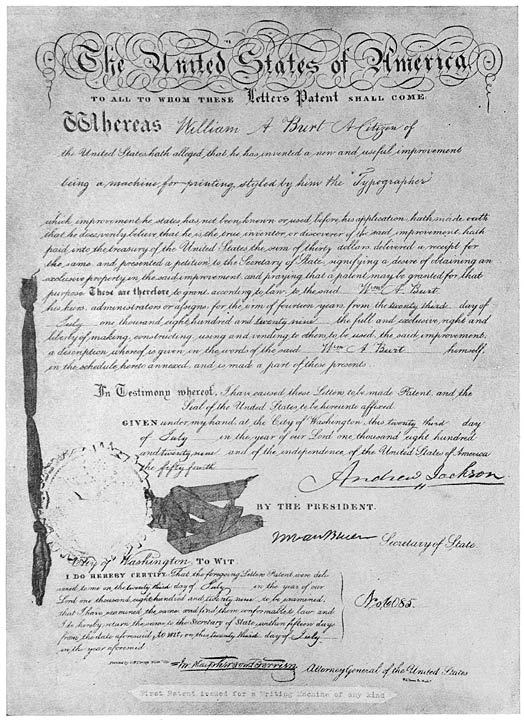 The United States of America
TO ALL TO WHOM THESE Letters Patent SHALL COME
Whereas William A Burt A Citizen of
the United States hath alleged that he has invented a new and useful improvement
being a machine for printing, styled by him the "Typographer"
which improvement he states has not been known or used before his application hath made oath
that he does verily believe that he is the true inventor or discoverer of the said improvement hath
paid into the treasury of the United States the sum of thirty dollars delivered a receipt for
the same and presented a petition to the Secretary of State signifying a desire of obtaining an
exclusive property in the said improvement and praying that a patent may be granted for that
purpose These are therefore to grant according to law to the said Wm A. Burt
his heirs administrators or assigns for the term of fourteen years from the twenty third day of
July one thousand eight hundred and twenty nine the full and exclusive right and
liberty of making, constructing, using and vending to others to be used the said improvement,
a description whereof is given in the words of the said Wm A Burt himself,
in the schedule hereto annexed and is made a part of these presents.
In Testimony whereof, I have caused these Letters to be made Patent, and the
Seal of the United States to be hereunto affixed.
GIVEN under my hand, at the City of Washington this twenty third day
of July in the year of our Lord one thousand eight hundred
and twenty nine and of the independence of the United States of America
the fifty fourth
Andrew Jackson
BY THE PRESIDENT.
M Van Buren Secretary of State
City of Washington TO WIT
I DO HEREBY CERTIFY That the foregoing Letters Patent were deli
vered to me on the twenty third day of July in the year of our
Lord one thousand eight hundred and twenty nine to be examined,
that I have examined the same and find them conformable to law and
I do hereby return the same to the Secretary of State within fifteen days
from the date aforesaid, to wit, on this twenty third day of July
in the year aforesaid
No 6085.
Attorney General of the United States
First Patent issued for a Writing Machine of any kind